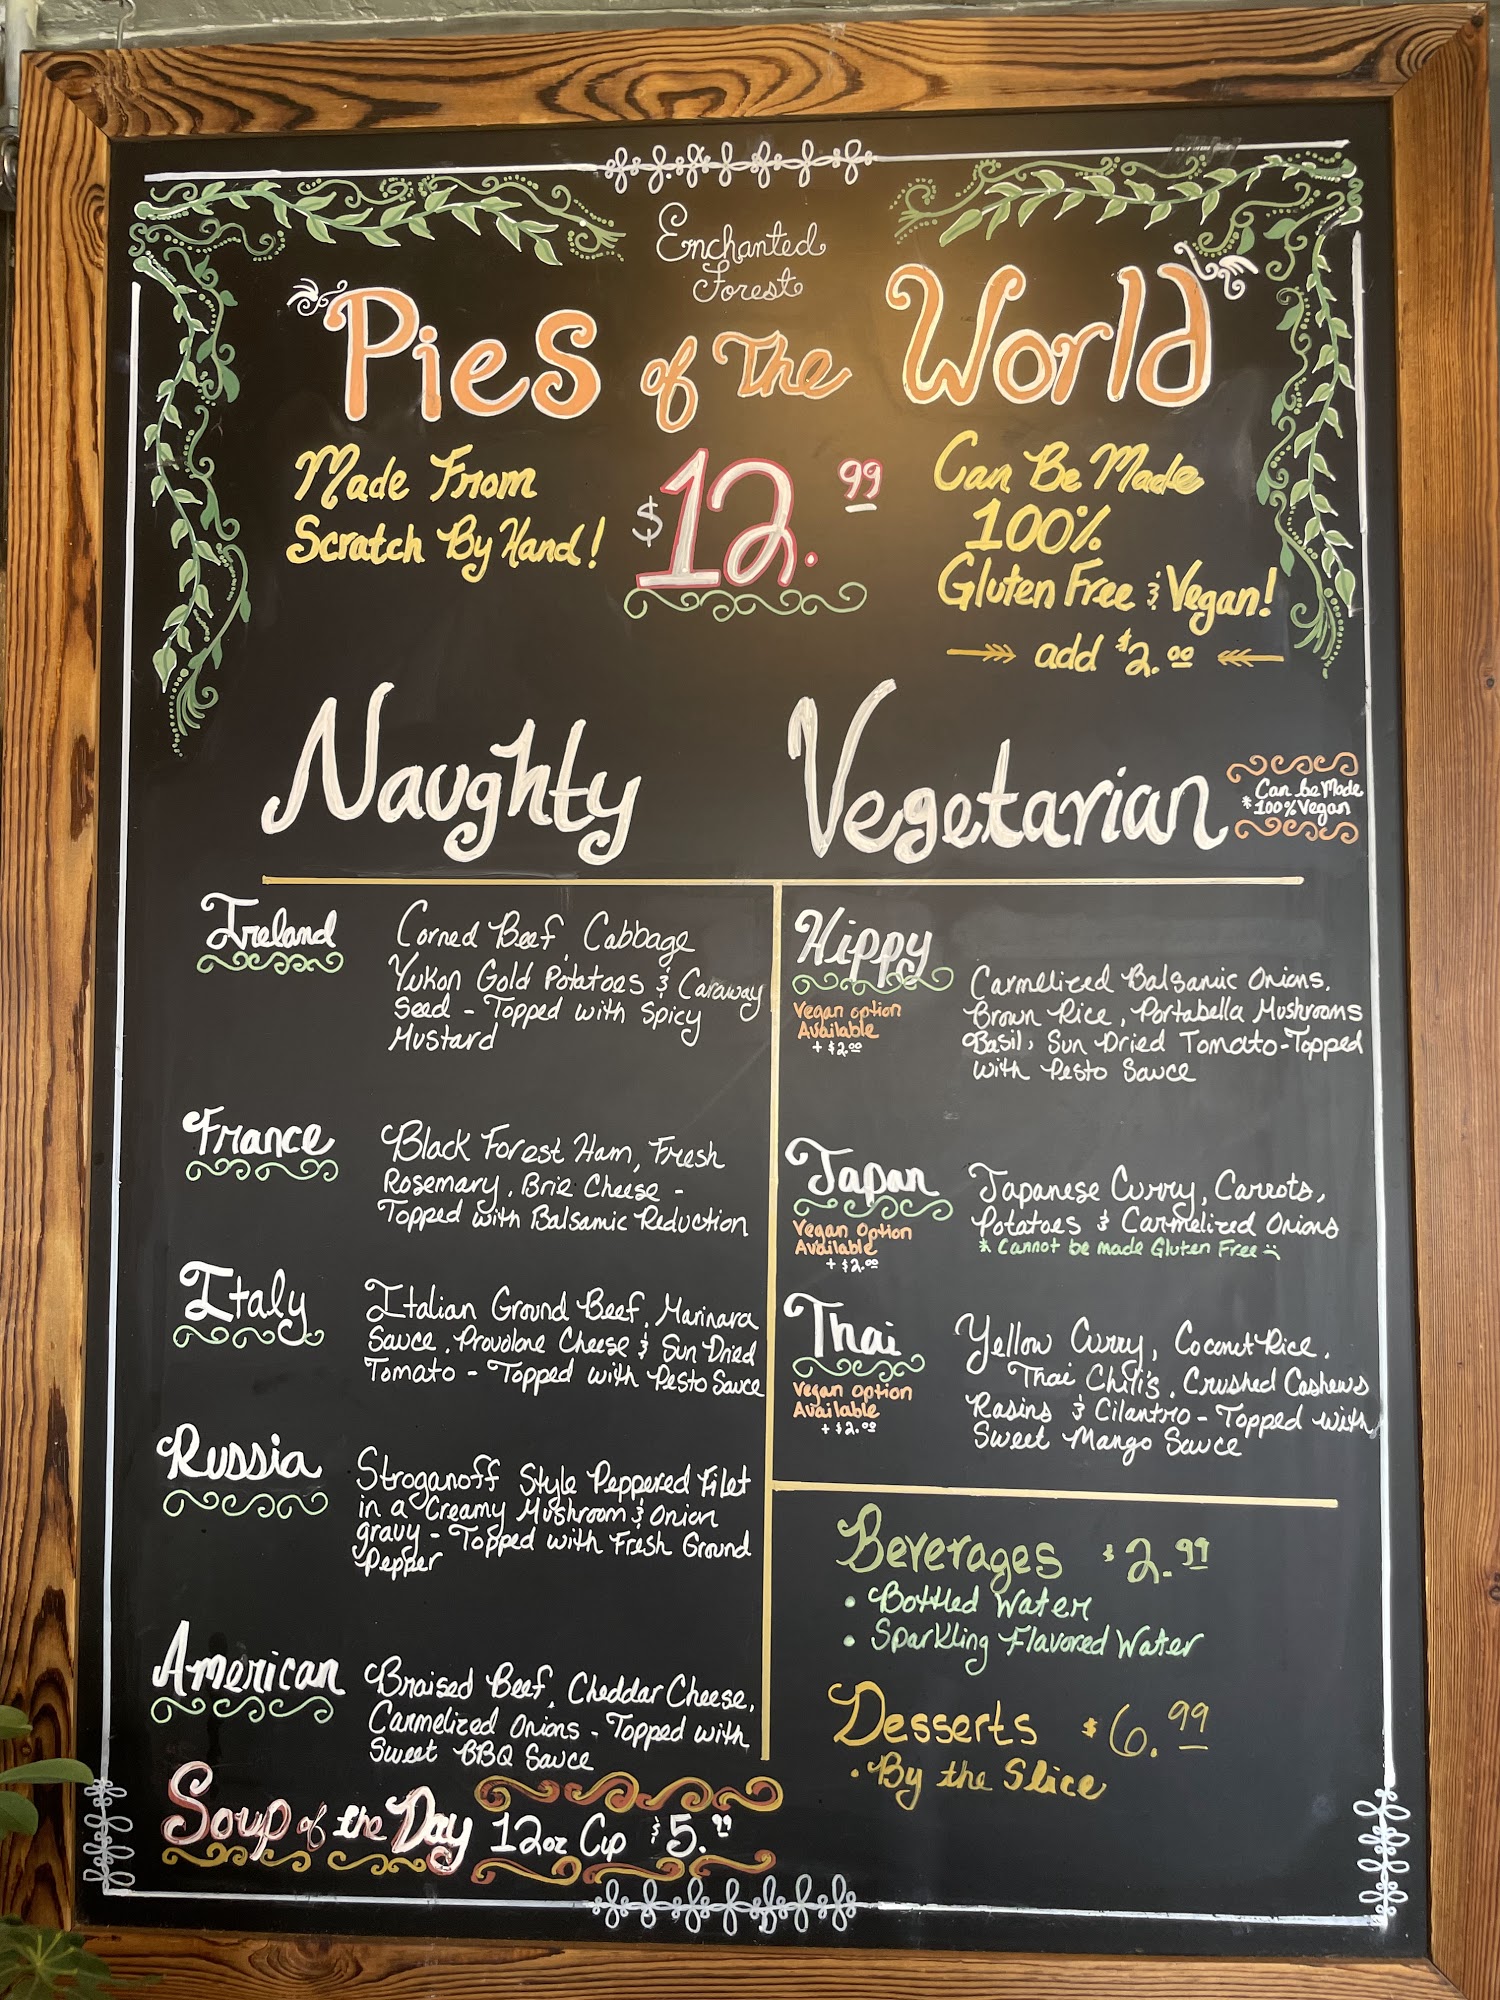 Enchanted
Forest
Pies of The World
Made From
Scratch By Hand!
$12.99
Can Be Made
100%
Gluten Free & Vegan!
add $2.00
Naughty
Vegetarian
Can be Made
*100% Vegan
Ireland
Corned Beef, Cabbage
Yukon Gold Potatoes & Caraway
Seed - Topped with Spicy
Mustard
France
Black Forest Ham, Fresh
Rosemary, Brie Cheese -
Topped with Balsamic Reduction
Italy
Italian Ground Beef, Marinara
Sauce, Provolone Cheese & Sun Dried
Tomato - Topped with Pesto Sauce
Russia
Stroganoff Style Peppered Filet
in a Creamy Mushroom & Onion
gravy - Topped with Fresh Ground
Pepper
American
Braised Beef, Cheddar Cheese,
Carmelized Onions - Topped with
Sweet BBQ Sauce
Soup of the Day 12oz Cup $5.
Hippy
Vegan option
Available
+ $2.00
Carmelized Balsamic Onions,
Brown Rice, Portabella Mushrooms
Basil, Sun Dried Tomato - Topped
with Pesto Sauce
Japan
Vegan Option
Available
+ $2.00
Japanese Curry, Carrots,
Potatoes & Carmelized Onions
* Cannot be made Gluten Free :(
Thai
Vegan Option
Available
+ $2.00
Yellow Curry, Coconut Rice,
Thai Chili's, Crushed Cashews
Rasins & Cilantro - Topped with
Sweet Mango Sauce
Beverages $2.99
• Bottled Water
• Sparkling Flavored Water
Desserts $6.99
• By the Slice